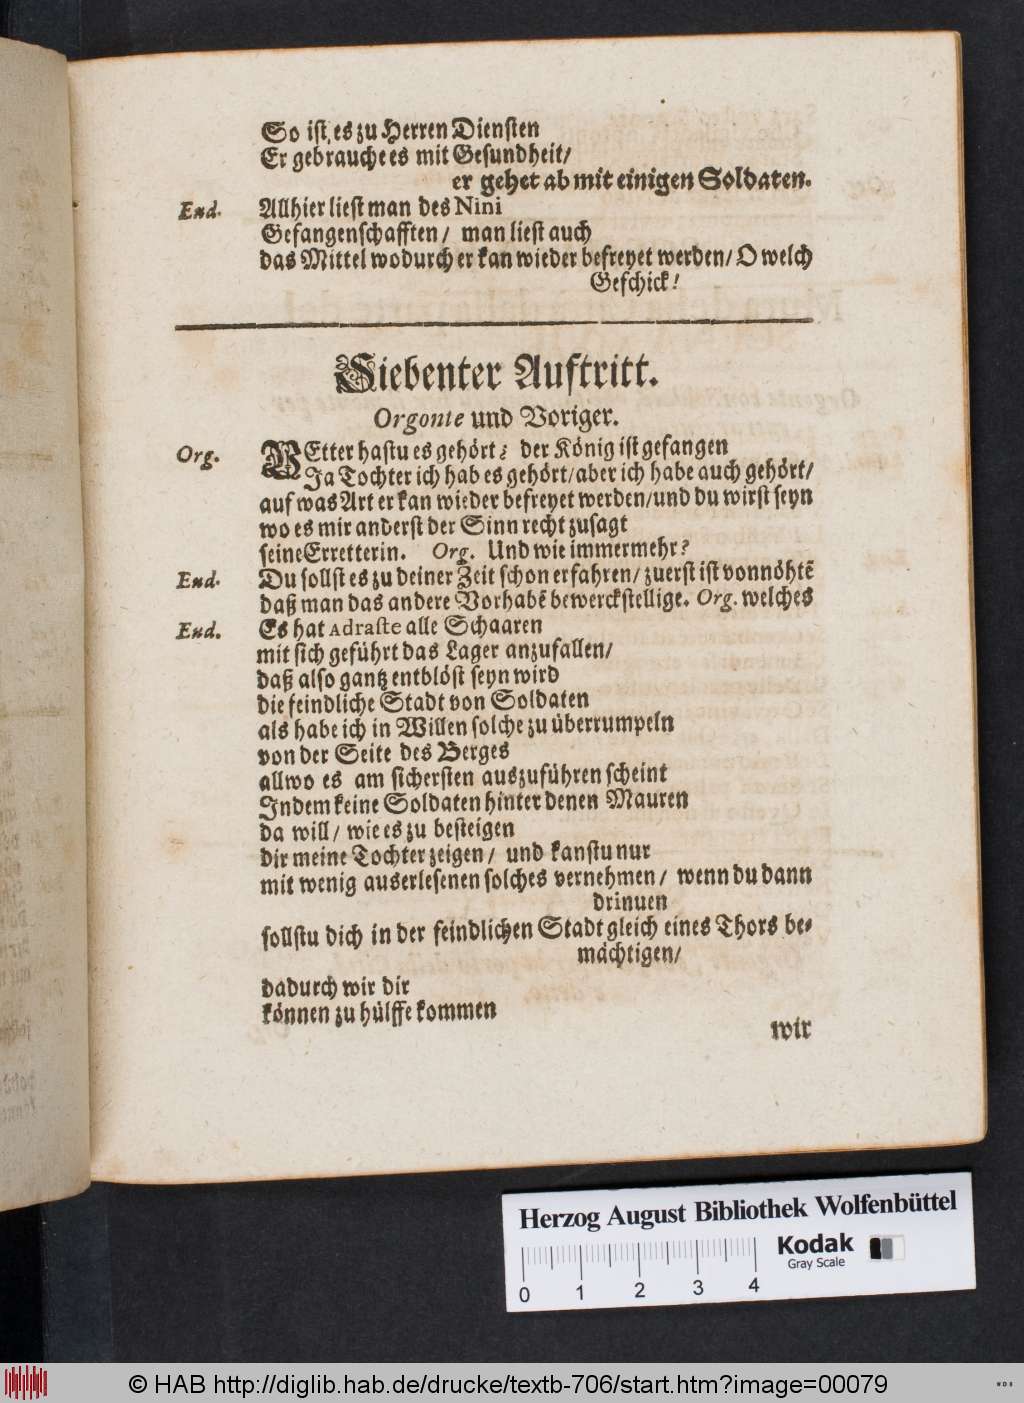 So ist, es zu Herren Diensten
Er gebrauche es mit Gesundheit/
er gehet ab mit einigen Soldaten.
End. Allhier liest man des Nini
Gefangenschafften/ man liest auch
das Mittel wodurch er kan wieder befreyet werden/ O welch
Geschick!
Siebenter Auftritt.
Orgonte und Voriger.
Org. VEtter hastu es gehört? der König ist gefangen
Ja Tochter ich hab es gehört/ aber ich habe auch gehört/
auf was Art er kan wieder befreyet werden/ und du wirst seyn
wo es mir anderst der Sinn recht zusagt
seine Erretterin. Org. Und wie immermehr?
End. Du sollst es zu deiner Zeit schon erfahren/ zuerst ist vonnöhtẽ
daß man das andere Vorhabẽ bewerckstellige. Org. welches
End. Es hat Adraste alle Schaaren
mit sich geführt das Lager anzufallen/
daß also gantz entblöst seyn wird
die feindliche Stadt von Soldaten
als habe ich in Willen solche zu überrumpeln
von der Seite des Berges
allwo es am sichersten auszuführen scheint
Indem keine Soldaten hinter denen Mauren
da will/ wie es zu besteigen
dir meine Tochter zeigen/ und kanstu nur
mit wenig auserlesenen solches vernehmen/ wenn du dann
drinuen
sollstu dich in der feindlichen Stadt gleich eines Thors be-
mächtigen/
dadurch wir dir
können zu hülffe kommen
wir
Herzog August Bibliothek Wolfenbüttel
Kodak
Gray Scale
0 1 2 3 4
© HAB http://diglib.hab.de/drucke/textb-706/start.htm?image=00079